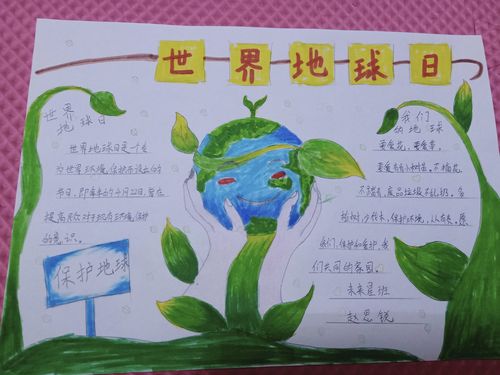 世界地球日
世界
地球日
世界地球日是一个专
为世界环境保护而设立的
节日，即每年的4月22日，旨在
提高民众对于现有环境保护
的意识。
保护地球
我们
的地球
要爱花，要爱草，
要爱青青小树苗。不摘花
不踏青，废品垃圾不乱扔，多
植树，少伐木，保护环境，从我来。愿
我们，保护和爱护，我
们共同的家园。
未来星班
赵思锐